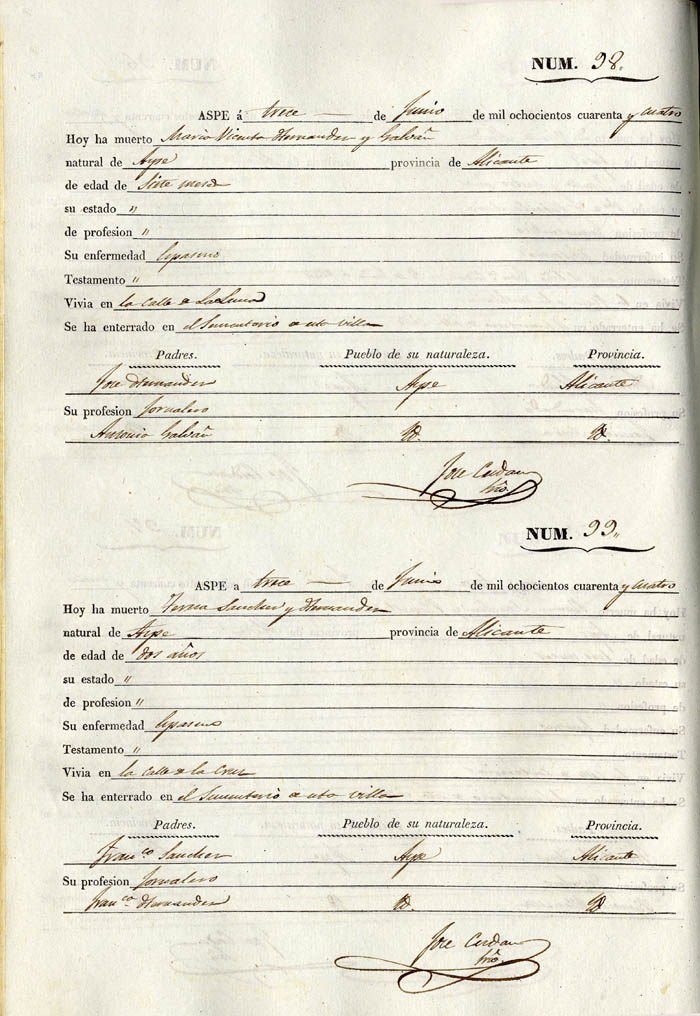 NUM. 98.
ASPE á trece de Junio de mil ochocientos cuarenta y cuatro
Hoy ha muerto Maria Vicenta Hernander y Galvañ
natural de Aspe provincia de Alicante
de edad de siete meses
su estado "
de profesion "
Su enfermedad Espasmo
Testamento "
Vivia en la Calle de La Luna
Se ha enterrado en el Sementerio de esta villa
Padres. Pueblo de su naturaleza. Provincia.
Jose Hernander Aspe Alicante
Su profesion Jornalero
Antonia Galvañ Yd. Yd.
Jose Cerdan
NUM. 99.
ASPE a trece de Junio de mil ochocientos cuarenta y cuatro
Hoy ha muerto Teresa Sancher y Hernander
natural de Aspe provincia de Alicante
de edad de dos años
su estado "
de profesion "
Su enfermedad Espasmo
Testamento "
Vivia en la Calle de la Cruz
Se ha enterrado en el Sementerio de esta villa
Padres. Pueblo de su naturaleza. Provincia.
Franco Sancher Aspe Alicante
Su profesion Jornalero
Franca Hernander Yd. Yd.
Jose Cerdan